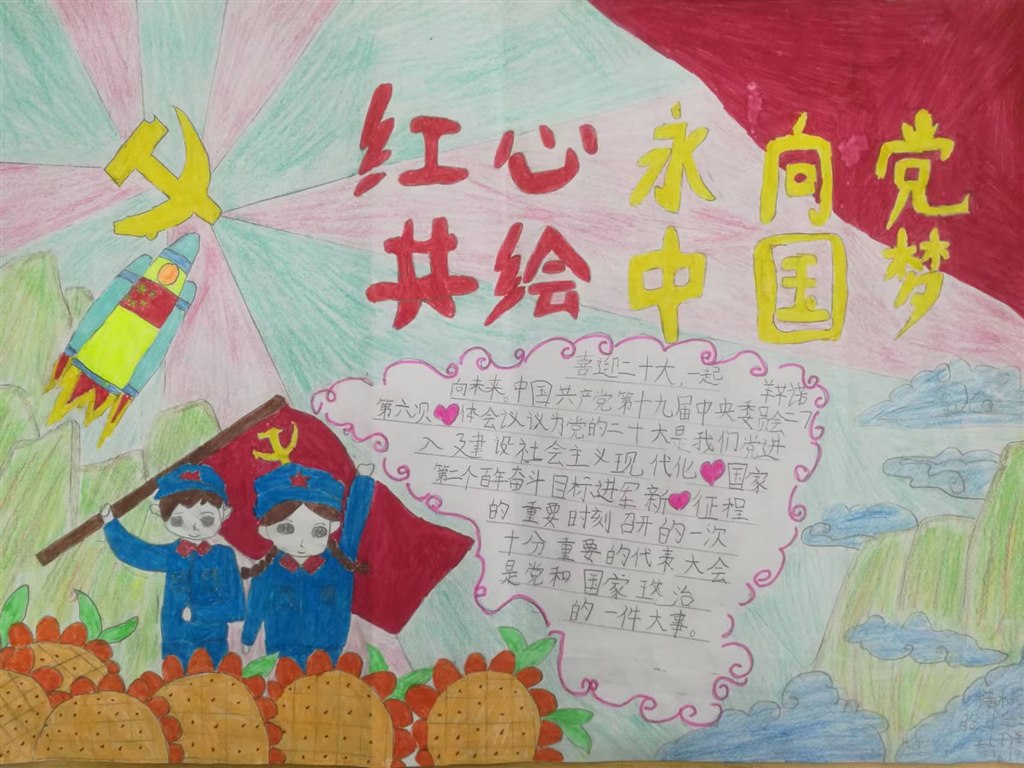 红心永向党
共绘中国梦
喜迎二十大,一起
向未来。中国共产党第十九届中央委员会
第六次体会议议为党的二十大是我们党进
入及建设社会主义现代化国家
第二个百年奋斗目标进军新征程
的重要时刻召开的一次
十分重要的代表大会
是党和国家政治
的一件大事。